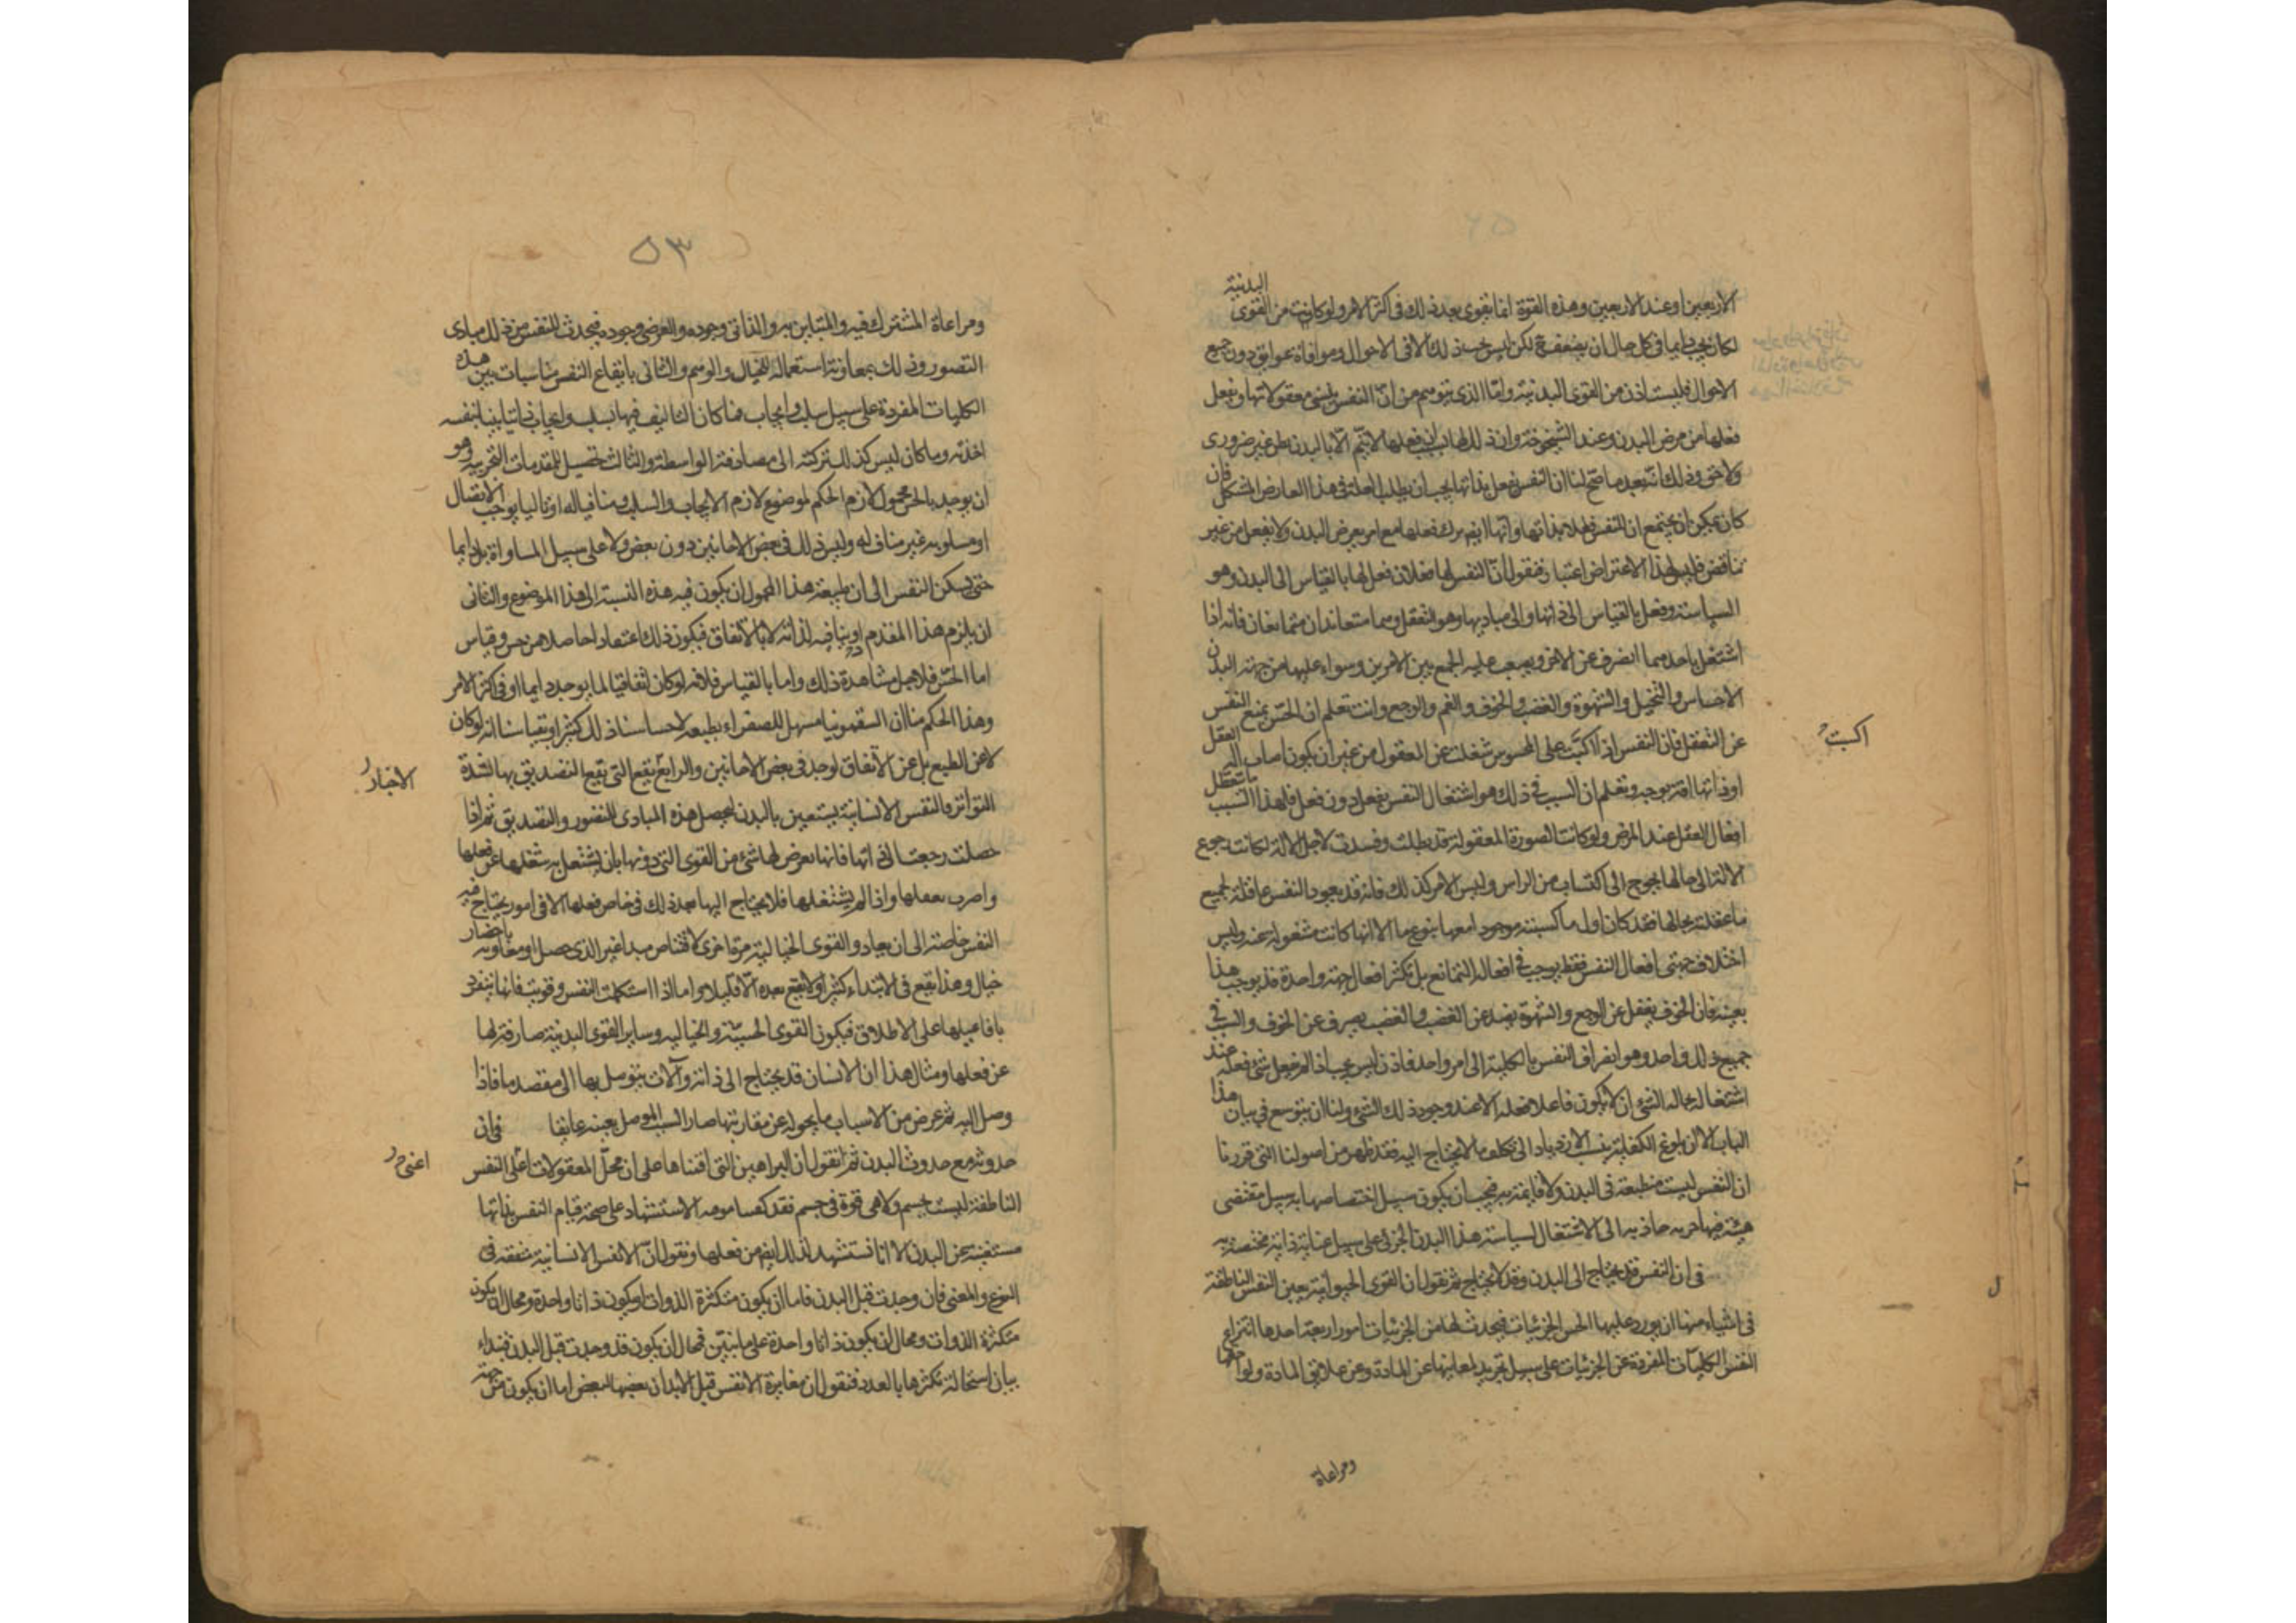 البدنية
الاربعين او عند الاربعين وهذه القوة انما تقوى بعد ذلك فى اكثر الامر ولو كانت من القوى
لكان يجب دايما فى كل حال ان يضعف ح لكن ليس يجب ذلك الا فى الاحوال وموافاة عوايق دون جميع
الاحوال فليست اذن من القوى البدنية واما الذى يتوهم من ان النفس ينسى معقولاتها ولا يفعل
فعلها من مرض البدن وعند الشيخوخة وان ذلك لها بسبب ان فعلها لا يتم الا بالبدن فظن غير ضرورى
ولا حق وذلك انه بعد ما صح لنا ان النفس يفعل بذاتها يجب ان يطلب العلة فى هذا العارض المشكل فان
كان يمكن ان يجتمع ان للنفس فعلا بذاتها وانها ايضا يترك فعلها مع امر يعرض البدن ولا يفعل من غير
تناقض فليس لهذا الاعتراض اعتبار فنقول ان النفس لها فعلان فعل لها بالقياس الى البدن وهو
السياسة وفعل بالقياس الى ذاتها والى مباديها وهو التعقل وهما متعاندان متمانعان فانه اذا
اشتغل باحدهما انصرف عن الاخر ويصعب عليه الجمع بين الامرين وسواء عليها من جهة البدن
الاحساس والتخيل والشهوة والغضب والخوف والغم والوجع وانت تعلم ان الحس يمنع النفس
عن التعقل فان النفس اذا اكبت على المحسوس شغلت عن المعقول من غير ان يكون اصاب الة العقل
اكبت
او ذاتها افة بوجه وتعلم ان السبب فى ذلك هو اشتغال النفس بفعل دون فعل فلهذا السبب ما تعطل
افعال العقل عند المرض ولو كانت الصورة المعقولة قد بطلت وفسدت لاجل الالة لكانت رجوع
الالة الى حالها يحوج الى اكتساب من الراس وليس الامر كذلك فانه قد يعود النفس عاقلة لجميع
ما عقلته بحالها فقد كان اول ما كسبته موجودا معها بنوع ما الا انها كانت مشغولة عنه وليس
اختلاف جهتى افعال النفس فقط يوجب فى افعاله التمانع بل تكثر افعال جهة واحدة قد يوجب هذا
بعينه فان الخوف يغفل عن الوجع والشهوة يصد عن الغضب والغضب يصرف عن الخوف والسبب فى
جميع ذلك واحد وهو انصراف النفس بالكلية الى امر واحد فاذن ليس يجب اذا لم يفعل شئ فعله عند
اشتغاله بحاله الشئ ان لا يكون فاعلا فعله الا عند وجود ذلك الشئ ولنا ان نتوسع فى بيان هذا
الباب الا ان بلوغ الكفاية ينسب الازدياد الى تكلف ما لا يحتاج اليه فقد ظهر من اصولنا التى قررنا
ان النفس ليست منطبعة فى البدن ولا قايمة به فيجب ان يكون سبيل اختصاصها به سبيل مقتضى
هيئة فيها جزئيه جاذبه الى الاشتغال لسياسة هذا البدن الجزئى على سبيل عناية ذاتية مختصة به
فى ان النفس قد يحتاج الى البدن وقد لا يحتاج ثم نقول ان القوى الحيوانية يعين النفس الناطقة
فى اشياء منها ان يورد عليها الحس الجزئيات فيحدث لها من الجزئيات امور اربعة احدها انتزاع
النفس الكليات المفردة عن الجزئيات على سبيل تجريد لمعانيها عن المادة وعن علايق المادة ولواحقها
ومراعاة
٥٣
ومراعاة المشترك فيه والمتباين به والذاتى وجوده والعرضى وجوده فيحدث للنفس من ذلك مبادى
التصور وذلك بمعاونة استعماله للخيال والوهم والثانى بايقاع النفس مناسبات بين هذه
الكليات المفردة على سبيل سلب وايجاب فما كان التاليف فيها بسلب وايجاب ذاتيا بينا بنفسه
اخذته وما كان ليس كذلك تركته الى مصادفة الواسطة والثالث تحصيل المقدمات التجربيه وهو
ان يوجد بالحس محمول لازم الحكم لموضوع لازم الايجاب والسلب ومنافيا له او تاليا يوجب الاتصال
او مسلوبه غير مناف له وليس ذلك فى بعض الاحايين دون بعض ولا على سبيل المساواة بل دايما
حتى يسكن النفس الى ان طبيعة هذا المحمول ان يكون فيه هذه النسبة الى هذا الموضوع والثانى
ان يلزم هذا المقدم او ينافيه لذاته لا بالاتفاق فيكون ذلك اعتقادا حاصلا من حس وقياس
اما الحس فلاجل مشاهدة ذلك واما بالقياس فلانه لو كان اتفاقيا لما يوجد دايما او فى اكثر الامر
وهذا الحكم منا ان السقمونيا مسهل للصفراء بطبيعه لاحساسنا ذلك كثيرا وبقياسنا انه لو كان
لا عن الطبع بل عن الاتفاق لوجد فى بعض الاحايين والرابع يقع التى يقع التصديق بها لشدة
الاخبار
التواتر والنفس الانسانية يستعين بالبدن لتحصل هذه المبادى للتصور والتصديق ثم اذا
حصلت رجعت الى ذاتها فانها يعرض لها شئ من القوى التى دونها بان يشتغل به شغلها عن فعلها
واضرب بفعلها واذا لم يشتغلها فلا يحتاج اليها بعد ذلك فى خاص فعلها الا فى امور يحتاج فيه
النفس خاصة الى ان يعاود القوى الخيالية مرة اخرى لاقتناص مبدا غير الذى حصل او معاونة باحضار
خيال وهذا يقع فى الابتداء كثيرا ولا يقع بعده الا قليلا واما اذا استكملت النفس وقويت فانها ينفرد
بافاعيلها على الاطلاق فيكون القوى الحسية والخيالية وساير القوى البدنية صارفة لها
عن فعلها ومثال هذا ان الانسان قد يحتاج الى ذاته وآلات يتوسل بها الى مقصد ما فاذا
وصل اليه ثم عرض من الاسباب ما يحوله عن مقارنتها صار السبب الموصل بعينه عايقا فى ان
حدوثه مع حدوث البدن ثم نقول ان البراهين التى اقمناها على ان محل المعقولات اعنى النفس
اعنى
الناطقة ليست بجسم ولا هى قوة فى جسم فقد كفتنا مؤنة الاستشهاد على صحة قيام النفس بذاتها
مستغنية عن البدن الا انا نستشهد لذلك ايضا من فعلها ونقول ان الانفس الانسانية متفقة فى
النوع والمعنى فان وجدت قبل البدن فاما ان يكون متكثرة الذوات او يكون ذاتا واحدة ومحال ان يكون
متكثرة الذوات ومحال ان يكون ذاتا واحدة على ما نبين فمحال ان يكون قد وجدت قبل البدن فنبداء
ببيان استحالة تكثرها بالعدد فنقول ان مغايرة الانفس قبل الابدان بعضها لبعض اما ان يكون من جهة